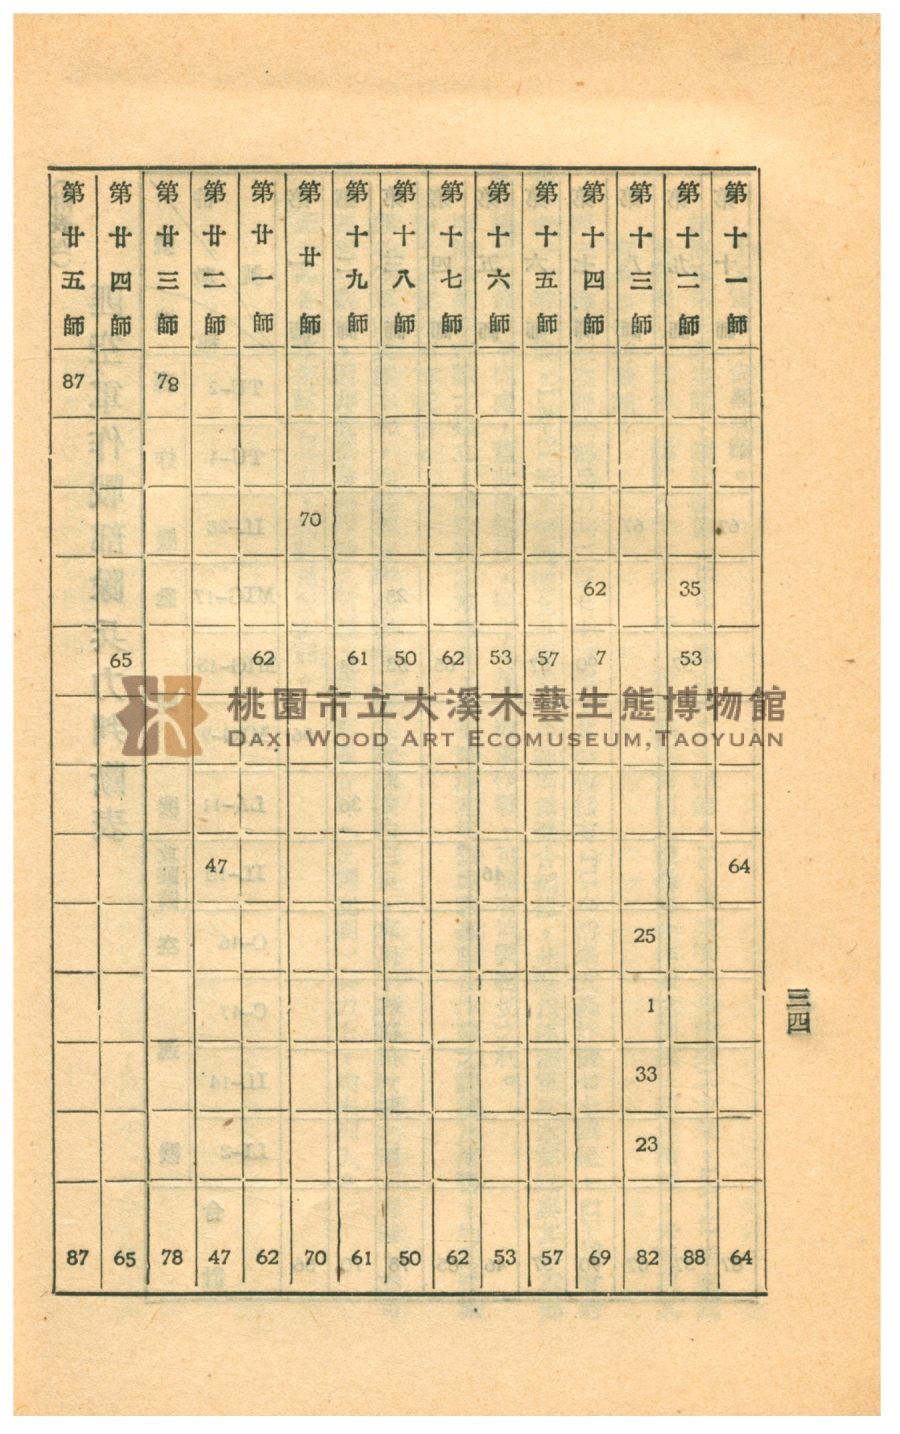 第十一師 64 64
第十二師 35 53 88
第十三師 25 1 33 23 82
第十四師 62 7 69
第十五師 57 57
第十六師 53 53
第十七師 62 62
第十八師 50 50
第十九師 61 61
第廿師 70 70
第廿一師 62 62
第廿二師 47 47
第廿三師 78 78
第廿四師 65 65
第廿五師 87 87
三四
桃園市立大溪木藝生態博物館
DAXI WOOD ART ECOMUSEUM,TAOYUAN